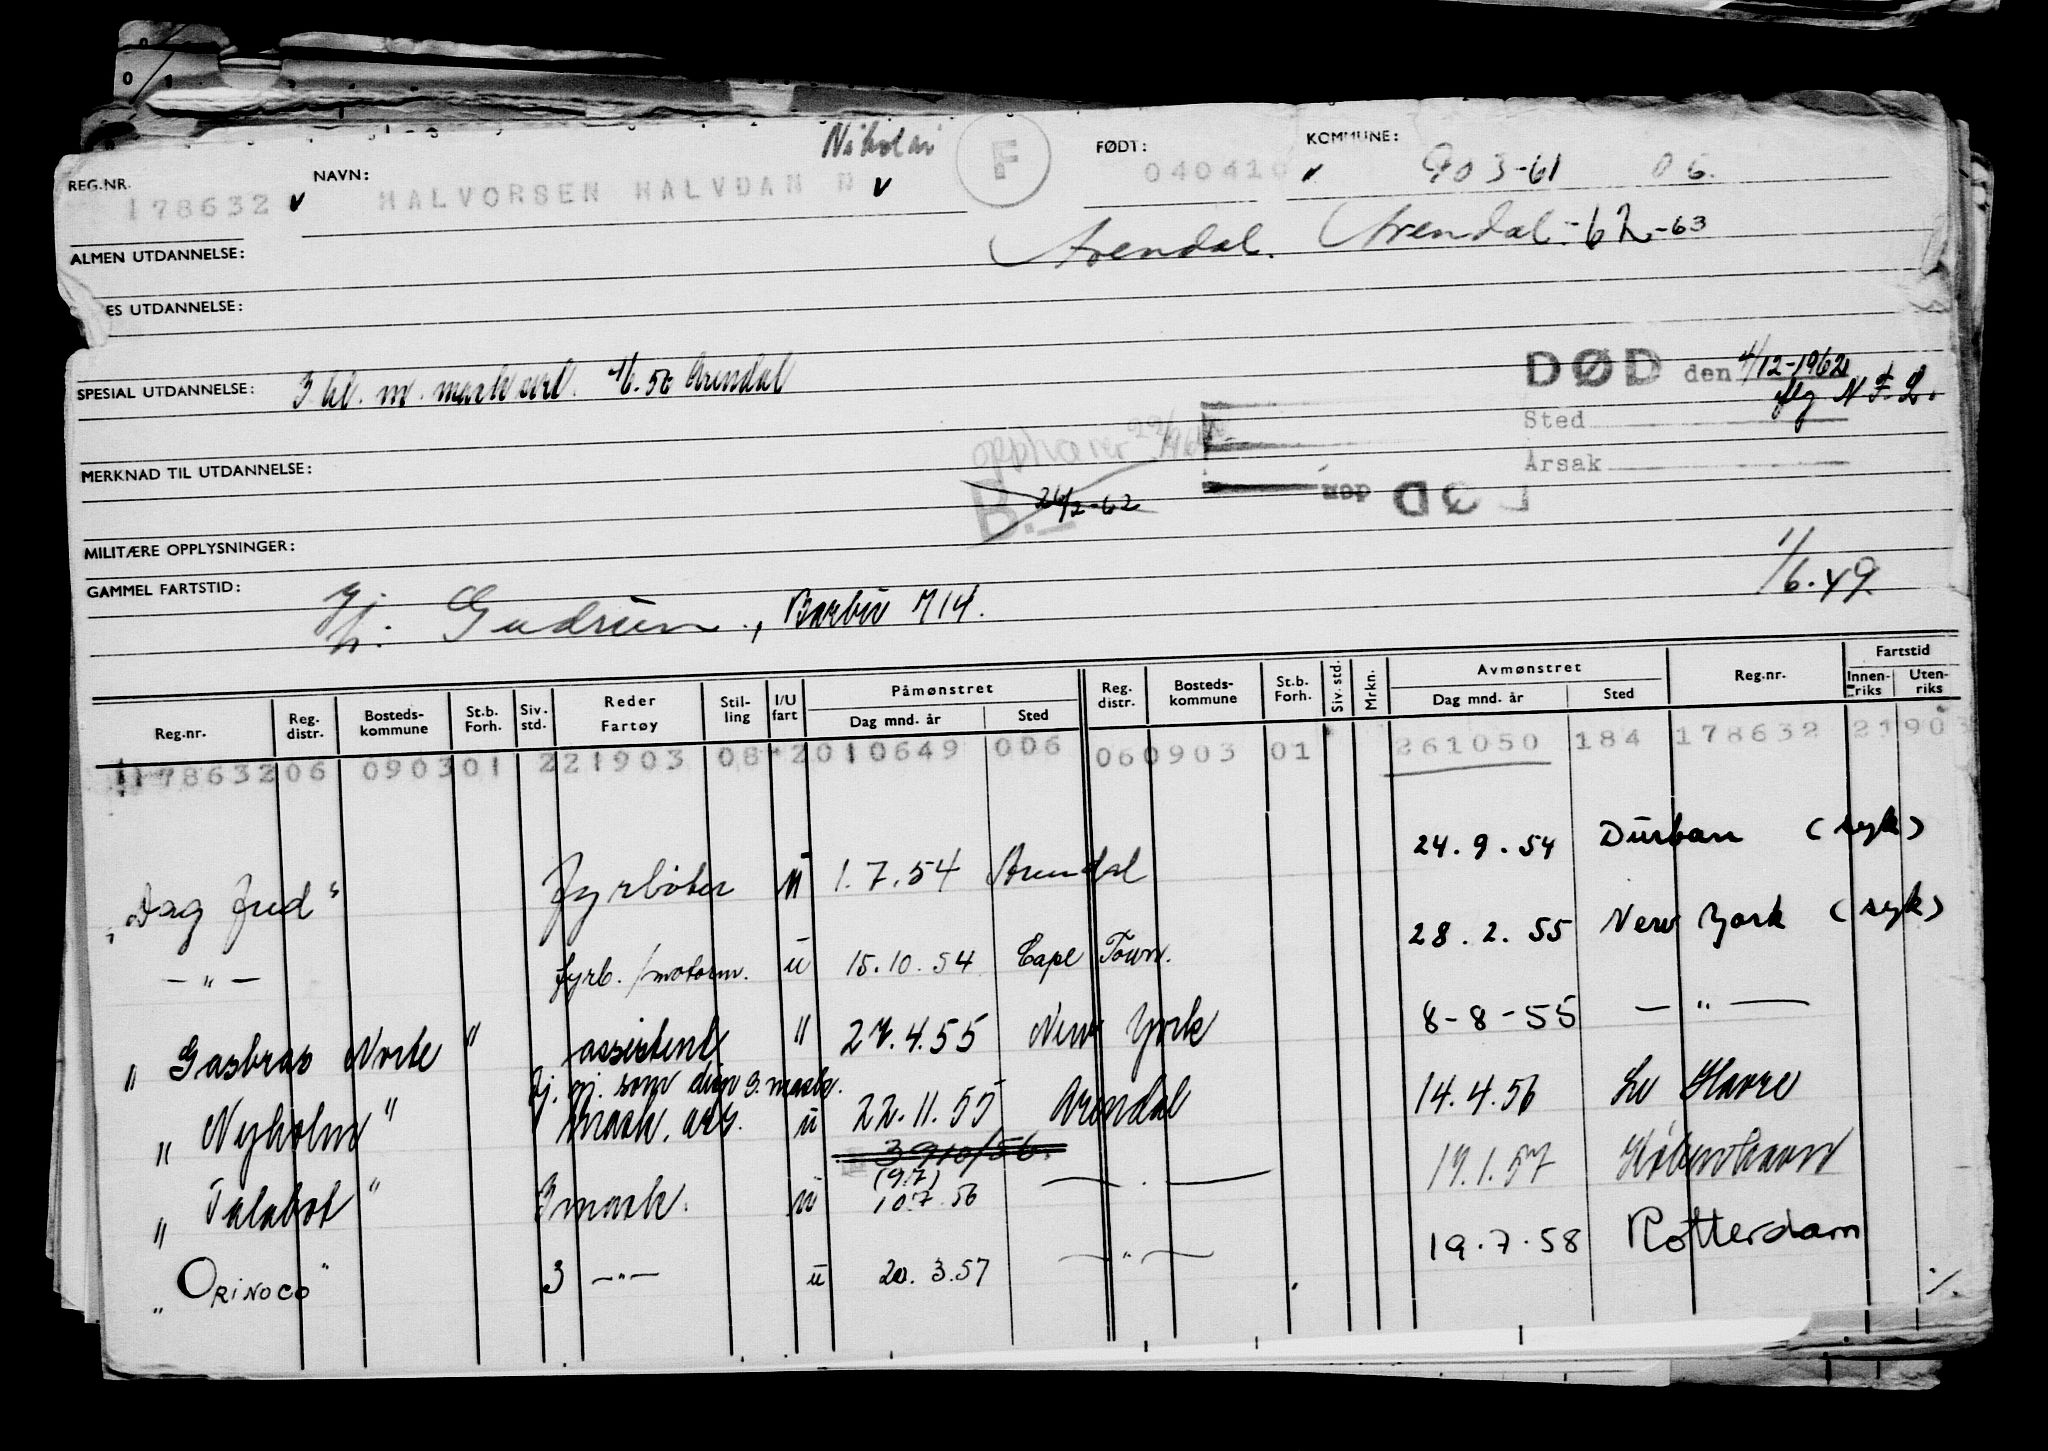 Nikolai
F
REG.NR. 178632 v NAVN: HALVORSEN HALVDAN N v FØDT: 040410 v KOMMUNE: 903-61 06.
ALMEN UTDANNELSE: Arendal. Arendal.-62-63
ES UTDANNELSE:
SPESIAL UTDANNELSE: 3 kl. m. mask sert. 4/6.56 Arendal
DØD den 4/12-1962
flg N.F.L.
Sted
Årsak
MERKNAD TIL UTDANNELSE:
opphører
B.- 26/2-62
den
MILITÆRE OPPLYSNINGER:
GAMMEL FARTSTID: Gj. Gudrun, Barbu 714.
1/6.49.
Reg.nr. Reg. distr. Bosteds-kommune St.b. Forh. Siv. std. Reder Fartøy Stil-ling I/U fart Påmønstret Dag mnd. år Sted Reg. distr. Bosteds-kommune St.b. Forh. Siv. std. Mrkn. Avmønstret Dag mnd. år Sted Reg.nr. Fartstid Innen-riks Uten-riks
178632 06 0903 01 221903 08 2 010649 006 06 0903 01 261050 184 178632 21903
"Dag Fred" Fyrbøter u 1.7.54 Arendal 24.9.54 Durban (syk)
-"- fyrb./motorm. u 15.10.54 Cape Town. 28.2.55 New York (syk)
"Gasbras Norte" assistent " 27.4.55 New York 8-8-55 -"-
Tj. gj. som disp 3. mask.
"Nyholm" mask. ass. u 22.11.55 Arendal 14.4.56 Le Havre
"Talabot" 3 mask. u (9.7) 10.7.56 -"- 19.1.57 København
"ORINOCO" 3 -"- u 20.3.57 -"- 19.7.58 Rotterdam
./.